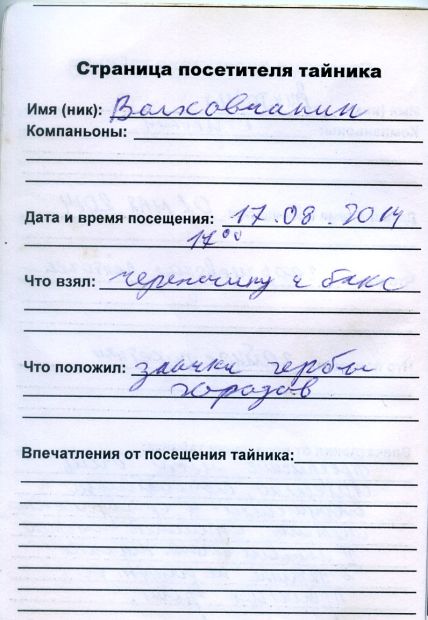 Страница посетителя тайника
Имя (ник): Волховчанин
Компаньоны:
Дата и время посещения: 17.08.2014
17⁰⁰
Что взял: черепашку и бакс
Что положил: значки гербы
городов
Впечатления от посещения тайника: